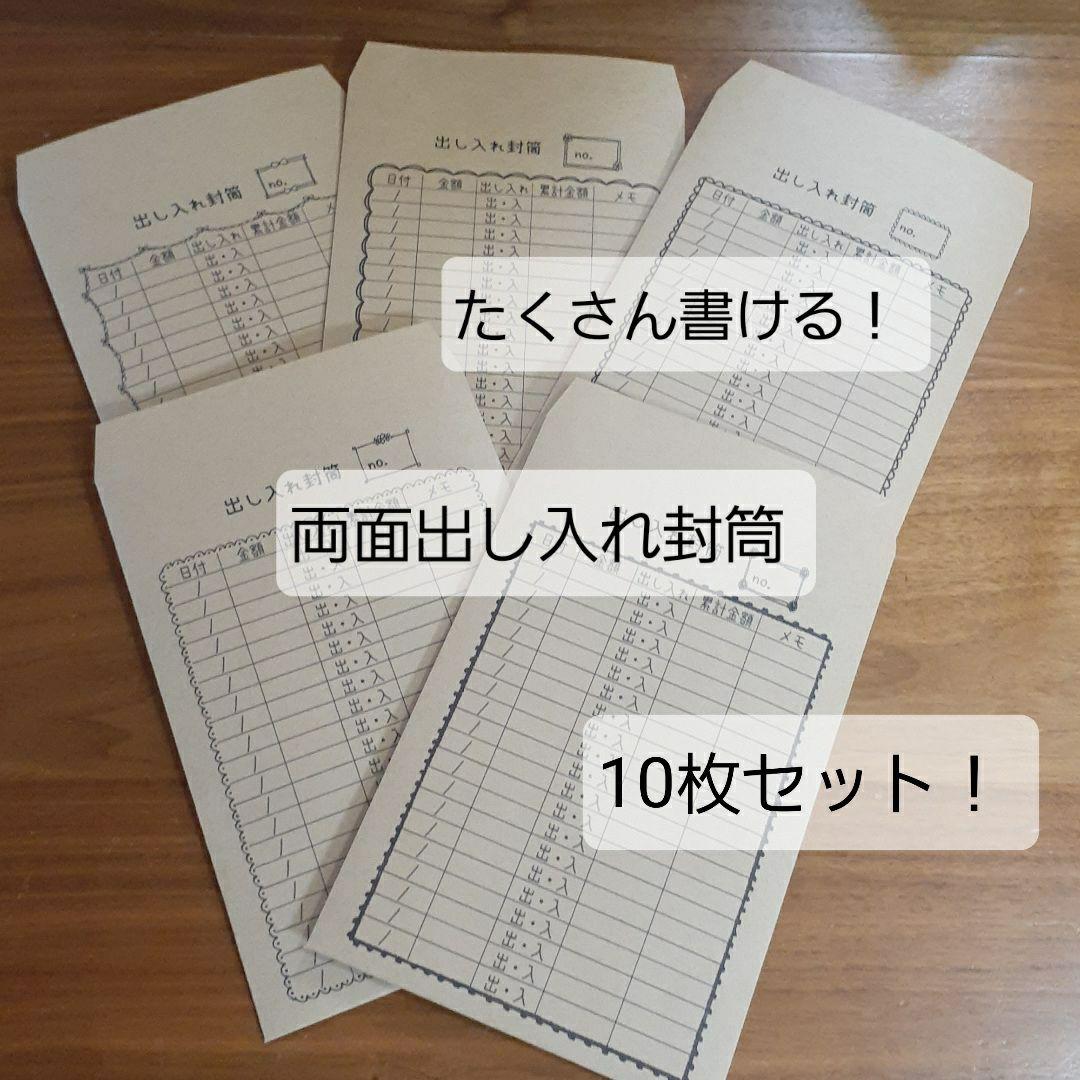 出し入れ封筒
no.
日付 金額 出し入れ 累計金額
出・入
出・入
出・入
出・入
出・入
出・入
出・入
出し入れ封筒
no.
日付 金額 出し入れ 累計金額 メモ
出・入
出・入
出・入
出・入
出・入
出・入
出・入
出・入
出・入
出・入
出・入
出・入
出し入れ封筒
no.
日付 金額 出し入れ 累計金額 メモ
出・入
出・入
出・入
たくさん書ける！
出し入れ封筒
no.
日付 金額 メモ
出・入
出・入
出・入
出・入
出・入
出・入
出・入
出・入
出・入
両面出し入れ封筒
no.
日付 金額 出し入れ 累計金額 メモ
出・入
出・入
出・入
出・入
出・入
出・入
出・入
出・入
出・入
出・入
出・入
出・入
出・入
出・入
出・入
出・入
10枚セット！